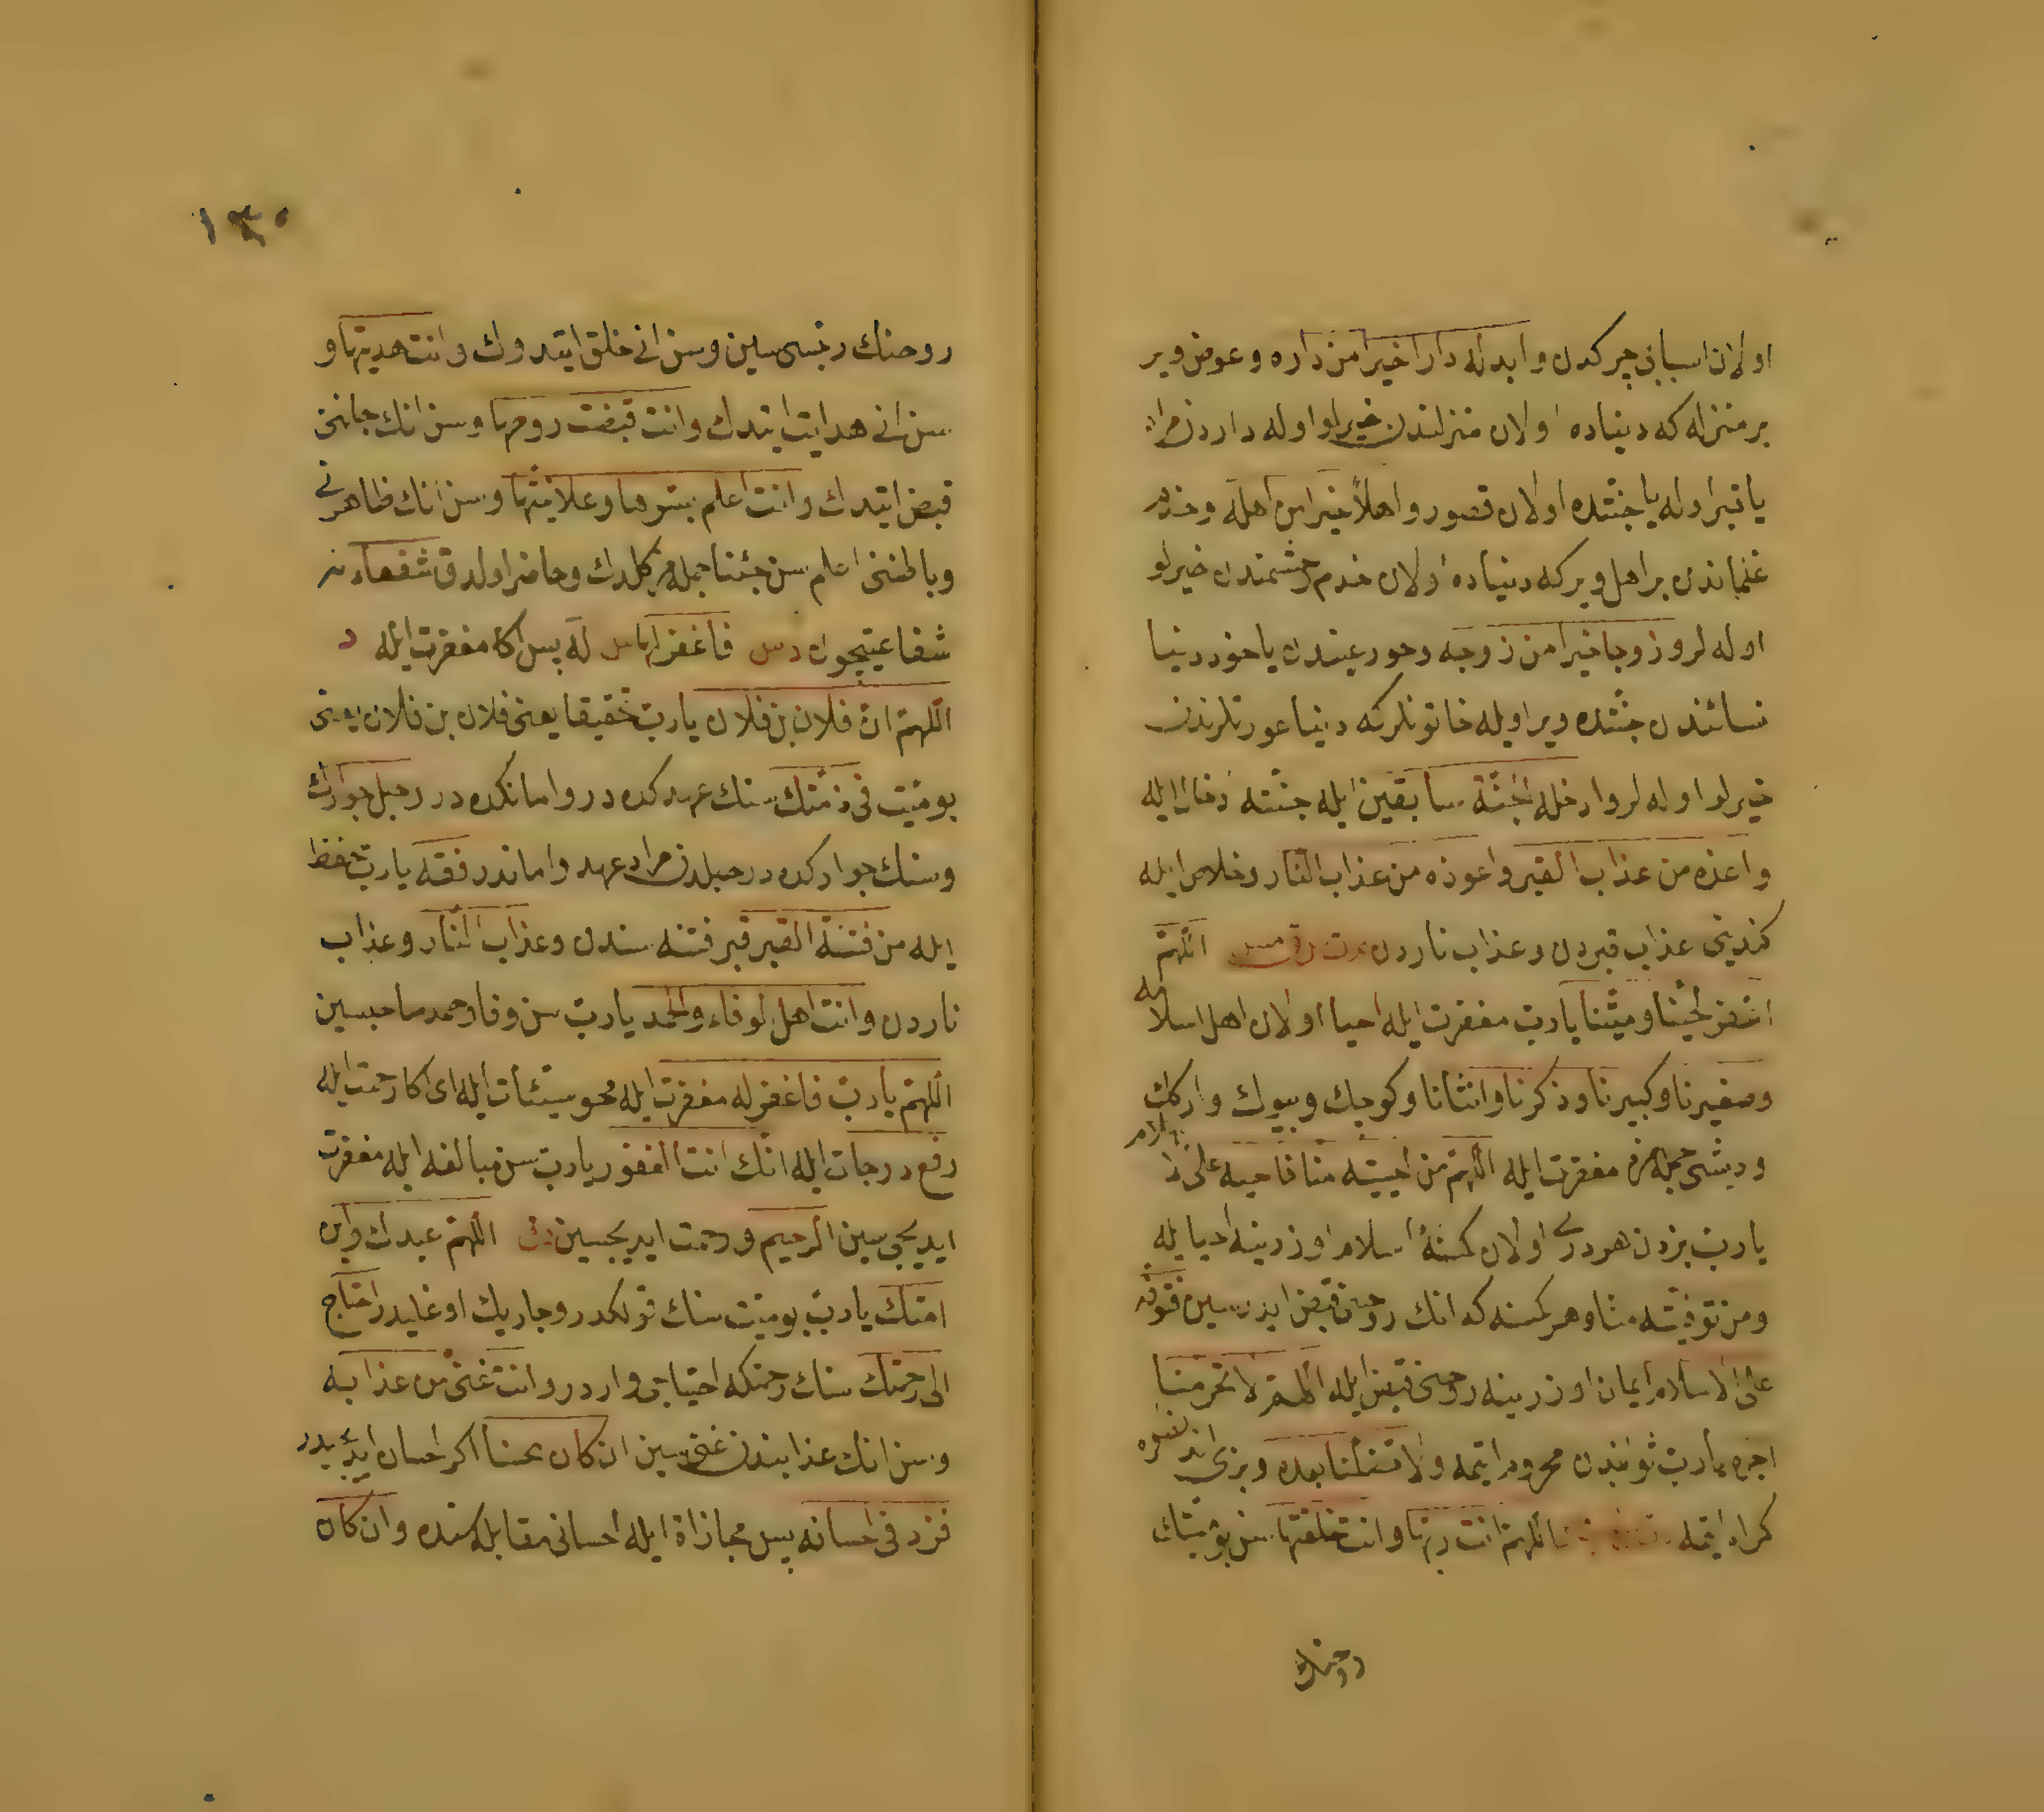 اولان اسبابی چركدن وابدله دارا خیرا من داره وعوض ویر
بر منزله كه دیناده اولان منزلندن خیرلو اوله داردن مراد
یا قبر اوله یا جنتده اولان قصور واهلاً خیرا من اهله وخدم
غلماندن بر اهل ویر كه دنیاده اولان خدم حشمندن خیرلو
اوله لر وزوجا خیرا من زوجه وحور عیندن یاخود دنیا
نسائندن جنتده ویر اویله خاتونلركه دنیا عورتلرندن
خیرلو اوله لر وادخله الجنّة سابقین ایله جنّته ادخال ایله
واعذه من عذاب القبر واعوذه من عذاب النّار وخلاص ایله
كندینی عذاب قبردن وعذاب ناردن اللّهمّ
اغفر لحیّنا ومیّتنا یا ربّ مغفرت ایله احیا اولان اهل اسلامه
وصغیرنا وكبیرنا وذكرنا وانثانا وكوچك وبیوك واركك
ودیشی جمله مزه مغفرت ایله اللّهمّ من احییته منّا فاحیه علی الاسلام
یا ربّ بزدن هر دری اولان كمسنۀ اسلام اوزرینه احیا ایله
ومن توفّیته منّا وهر كمسنه كه انك روحنی قبض ایدرسین فتوفّه
علی الاسلام ایمان اوزرینه روحنی قبض ایله اللّهمّ لا تحرمنا
اجره یا ربّ ثوابندن محروم ایتمه ولا تضلّنا بعده وبزی اندنصكره
كمراه ایتمه اللّهمّ انت ربّها وانت خلقتها سن بو میّتك
روحنك
١٣٥
روحنك ربّسی سین وسن انی خلق ایتدوك وانت هدیتها و
سن انی هدایت ایتدك وانت قبضت روحها وسن انك جانن
قبض ایتدك وانت اعلم بسرّها وعلانیتها وسن انك ظاهرنی
وباطننی اعلم سن جئنا جمله مز كلدك وحاضر اولدق شفعاء بز
شفاعتیچون دس فاغفر لها س له پس اكا مغفرت ایله د
اللّهمّ انّ فلان بن فلان یا ربّ تحقیقا یعنی فلان بن فلان یعنی
بو میّت فی ذمّتك سنك عهدكده در وامانكده در وحبل جوارك
وسنك جواركده در حبلدن مراد عهد واماندر فقه یا ربّ حفظ
ایله من فتنة القبر قبر فتنه سندن وعذاب النّار وعذاب
ناردن وانت اهل الوفاء والحمد یا ربّ سن وفا وحمد صاحبیسین
اللّهمّ یا ربّ فاغفر له مغفرت ایله محو سیّئات ایله ای اكا رحمت ایله
رفع درجات ایله انّك انت الغفور یا ربّ سن مبالغه ایله مغفرت
ایدیجی سین الرحیم ورحمت ایدیجیسین اللّهمّ عبدك وابن
امتك یا ربّ بو میّت سنك قولكدر وجاریك اوغلیدر احتاج
الی رحمتك سنك رحمتكه احتیاجی واردر وانت غنیّ من عذابه
وسن انك عذابندن غنی سین ان كان محسنا اكر احسان ایدیجیدر
فزد فی احسانه پس مجازاة ایله احسانی مقابله سنده وان كان